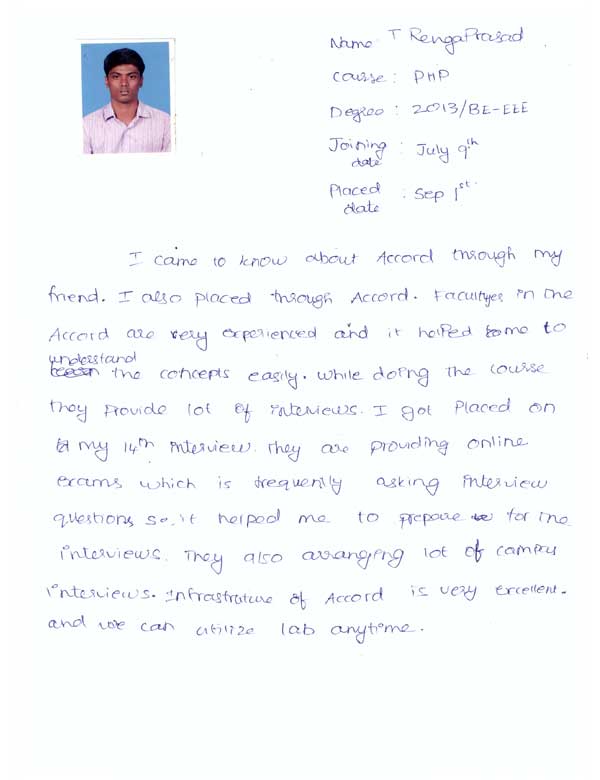 Name : T RengaPrasad
Course : PHP
Degree : 2013/BE-EEE
Joining date : July 9th
Placed date : Sep 1st.
I came to know about Accord through my
friend. I also placed through Accord. Facultyes in the
Accord are very experienced and it helped to me to
understand
the concepts easily. While doing the course
they provide lot of interviews. I got Placed on
my 14th interview. They are providing online
exams which is frequently asking interview
questions so. it helped me to prepare for the
interviews. They also arranging lot of campus
interviews. Infrastrature of Accord is very excellent.
and we can utilize lab anytime.